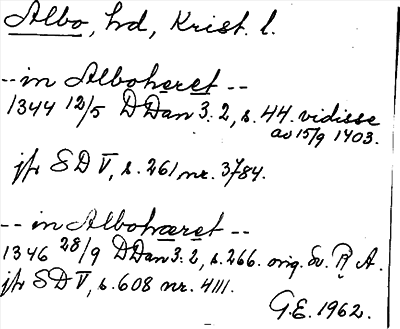 Albo, hd, Krist. l.
-- in Alboheret --
1344 12/5 DDan 3: 2, s. 44. vidisse
av 15/9 1403.
jfr SD V, s. 261 nr. 3784.
-- in Albohæret --
1346 28/9 DDan 3: 2, s. 266. orig. Sv. R A.
jfr SD V, s. 608 nr. 4111.
G.E. 1962.